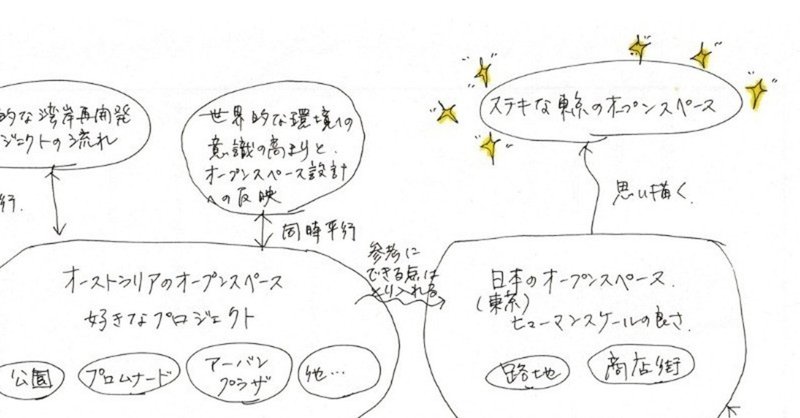 的な湾岸再開発
ジェクトの流れ
行.
世界的な環境への
意識の高まりと.
オープンスペース設計
への反映
同時平行
ステキな東京のオープンスペース
思い描く.
オーストラリアのオープンスペース
好きなプロジェクト
公園
プロムナード
アーバン
プラザ
他…
参考に
できる点は
とり入れる
日本のオープンスペース.
(東京)
ヒューマンスケールの良さ.
路地
商店街